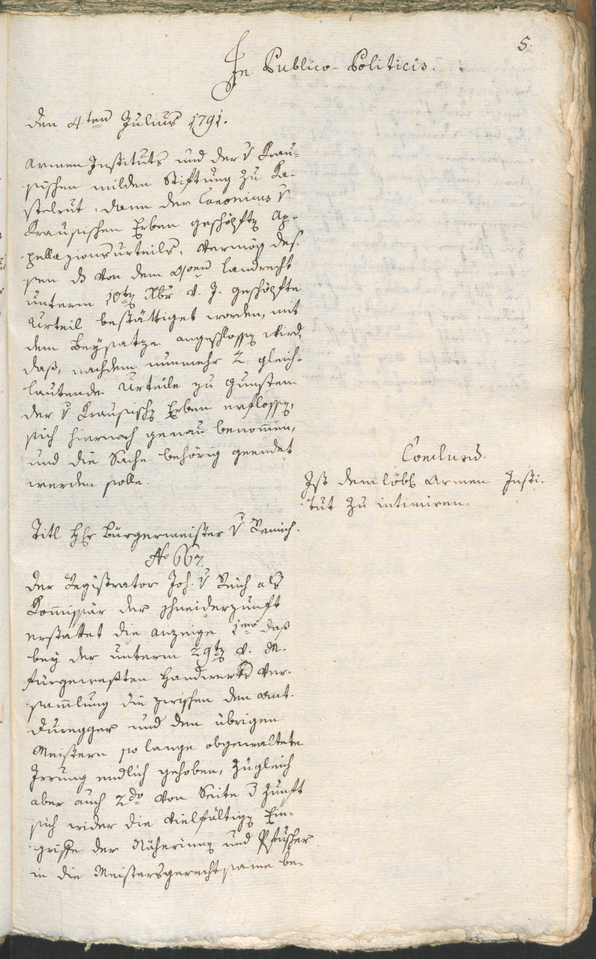 5.
In Publico-Politicis.
den 4ten Julius 1791.
Armen Instituts und der v Krau-
sischen milden Stiftung zu Ka-
stelrut, dann der Canonicus v
Krausischen Erben geschöpfte Ap-
pellazionsurteils, vermög des-
sen von dem Landrecht
unterm 10ten Xbr v. J. geschöpfte
Urteil bestättiget worden, mit
dem Beysatze angeschlossen wird,
daß, nachdem nunmehr 2 gleich-
lautende Urteile zu Gunsten
der v Krausischen Erben erflossen,
sich hiernach genau benommen,
und die Sache behörig geendet
werden solle.
Conclusum.
Ist dem löbl Armen Insti-
tut zu intimiren.
Titl Hr Bürgermeister v
No 667.
Der Registrator Joh. v als
Kommissär der Schneiderzunft
erstatet die Anzeige 1mo daß
bey der unterm 29ten v. M.
fürgewesten Handwerks Ver-
sammlung die zwischen den Ant.
Duregger und den übrigen
Meistern so lange obgewaltete
Irrung endlich gehoben, zugleich
aber auch 2do von Seite d Zunft
sich wider die vielfältigen Ein-
griffe der Näherinen und Pfuscher
in die Meistersgerechtsame be-